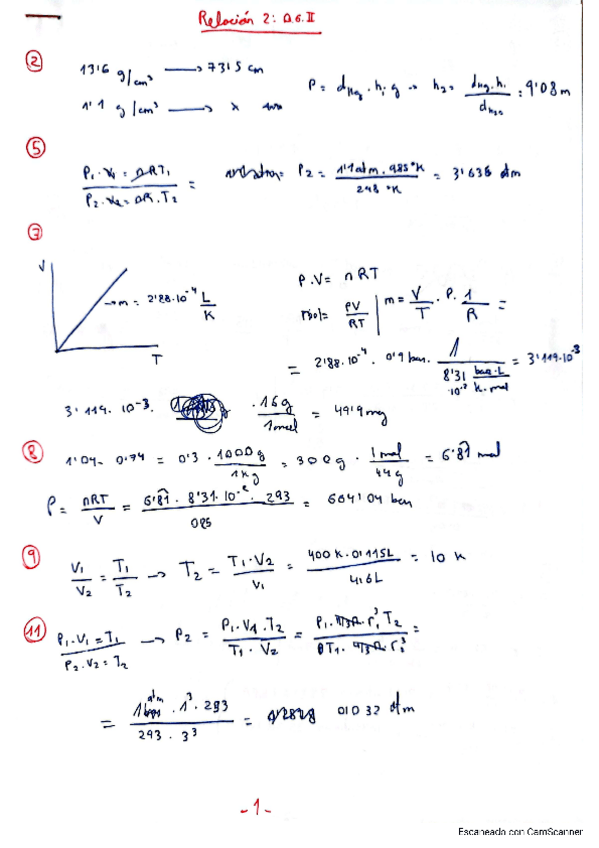 Relación 2: Q.G.II
②
13'6 g/cm³ ⟶ 73'5 cm
1'1 g/cm³ ⟶ x
P = d_Hg · h · g → h₂ = d_Hg · h / d = 9'08 m
⑤
P₁ · V₁ = nRT₁ / P₂ · V₂ = nR · T₂ =
P₂ = 1'1 atm · 985 °K / 298 °K = 3'636 atm
⑦
V
T
→ m = 2'88·10⁻⁴ L/K
P · V = nRT
PV / RT
m = V/T · P · 1/R =
= 2'88·10⁻⁴ · 0'9 bar · 1 / 8'31 ·10⁻² bar·L / K·mol = 3'119·10⁻³
3'119·10⁻³ · 16g / 1mol = 49'9 mg
⑧
1'04 - 0'74 = 0'3 · 1000g / 1Kg = 300g · 1mol / 44g = 6'81 mol
P = nRT / V = 6'81 · 8'31·10⁻² · 293 / 0'25 = 604'04 bar
⑨
V₁/V₂ = T₁/T₂ → T₂ = T₁·V₂ / V₁ = 400 K · 0'115L / 4'6L = 10 K
⑪
P₁·V₁ = T₁ / P₂·V₂ = T₂ → P₂ = P₁·V₁·T₂ / T₁·V₂ = P₁ · 4/3π · r₁³ T₂ / T₁ · 4/3π · r₂³ =
= 1 atm · 1³ · 293 / 293 · 3³ = 0'032 atm
-1-
Escaneado con CamScanner